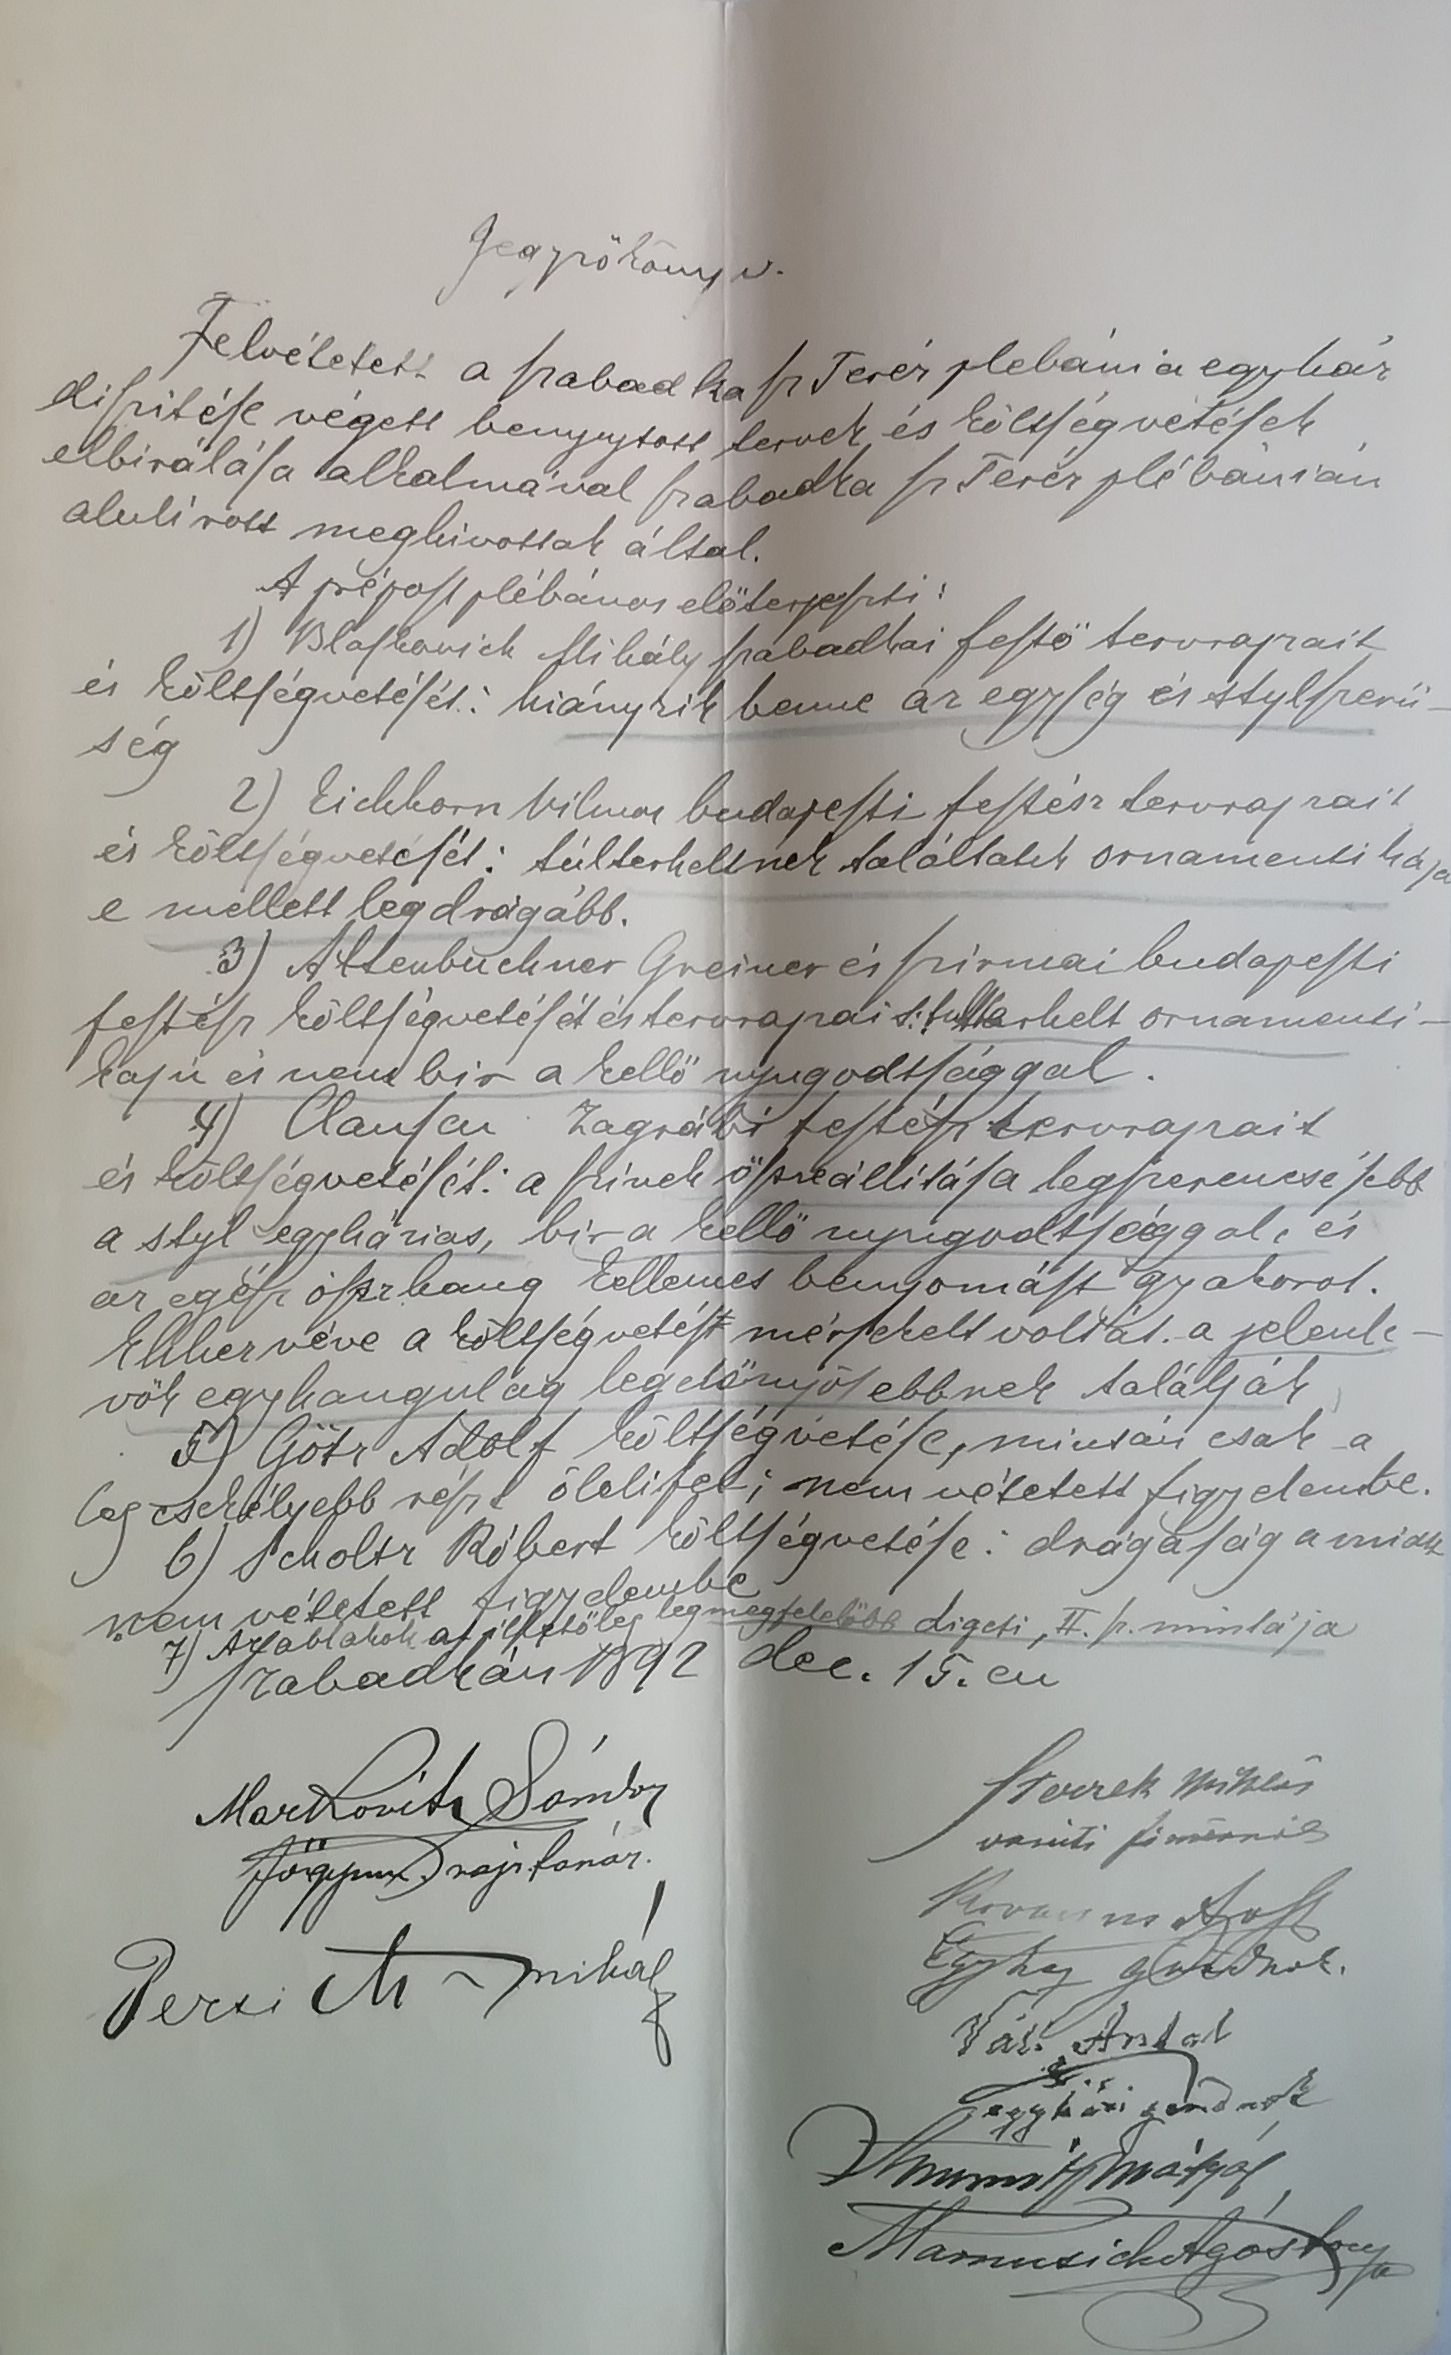 Jegyzőkönyv.
Felvétetett a szabadka sz Teréz plebánia egyház
diszitése végett benyujtott tervek és költségvetések
elbirálása alkalmával szabadka sz Teréz plébánián
alulirott meghivottak által.
A prépost plébános előterjeszti:
1) Blaskovich Mihály szabadkai festő tervrajzait
és költségvetését: hiányzik benne az egység és stylszerü-
ség
2) Eichhorn Vilmos budapesti festész tervrajzait
és költségvetését: túlterheltnek találtatik ornamentikája
e mellett legdrágább.
3) Altenbuchner Greiner és szirmai budapesti
festész költségvetését és tervrajzait: túlterhelt ornamenti-
kaju és nem bir a kellő nyugodtsággal.
4) Clausen Zágrábi festész tervrajzait
és költségvetését: a szinek összeállitása legszerencsésebb
a styl egyházias, bir a kellő nyugodtsággal, és
az egész összhang kellemes benyomást gyakorol.
Ehhez véve a költségvetést mérsékelt voltát. a jelenle-
vök egyhangulag legelőnyösebbnek találják
5) Götz Adolf költségvetése, miután csak a
legcsekélyebb részt öleli fel; nem vétetett figyelembe.
6) Scholtz Róbert költségvetése: drágaság a miatt
nem vétetett figyelembe
7) Az ablakok at illetőleg legmegfelelőbb digeti, II. sz. mintája
Szabadkán 1892 dec. 15. en
Markovits Sándor
főgymn. rajztanár.
Sterzek Miklós
városi főmérnök
Egyház gondnok.
Persits Mihály
Antal
egyházi gondnok
Mátyás
Mamuzsich Ágoston